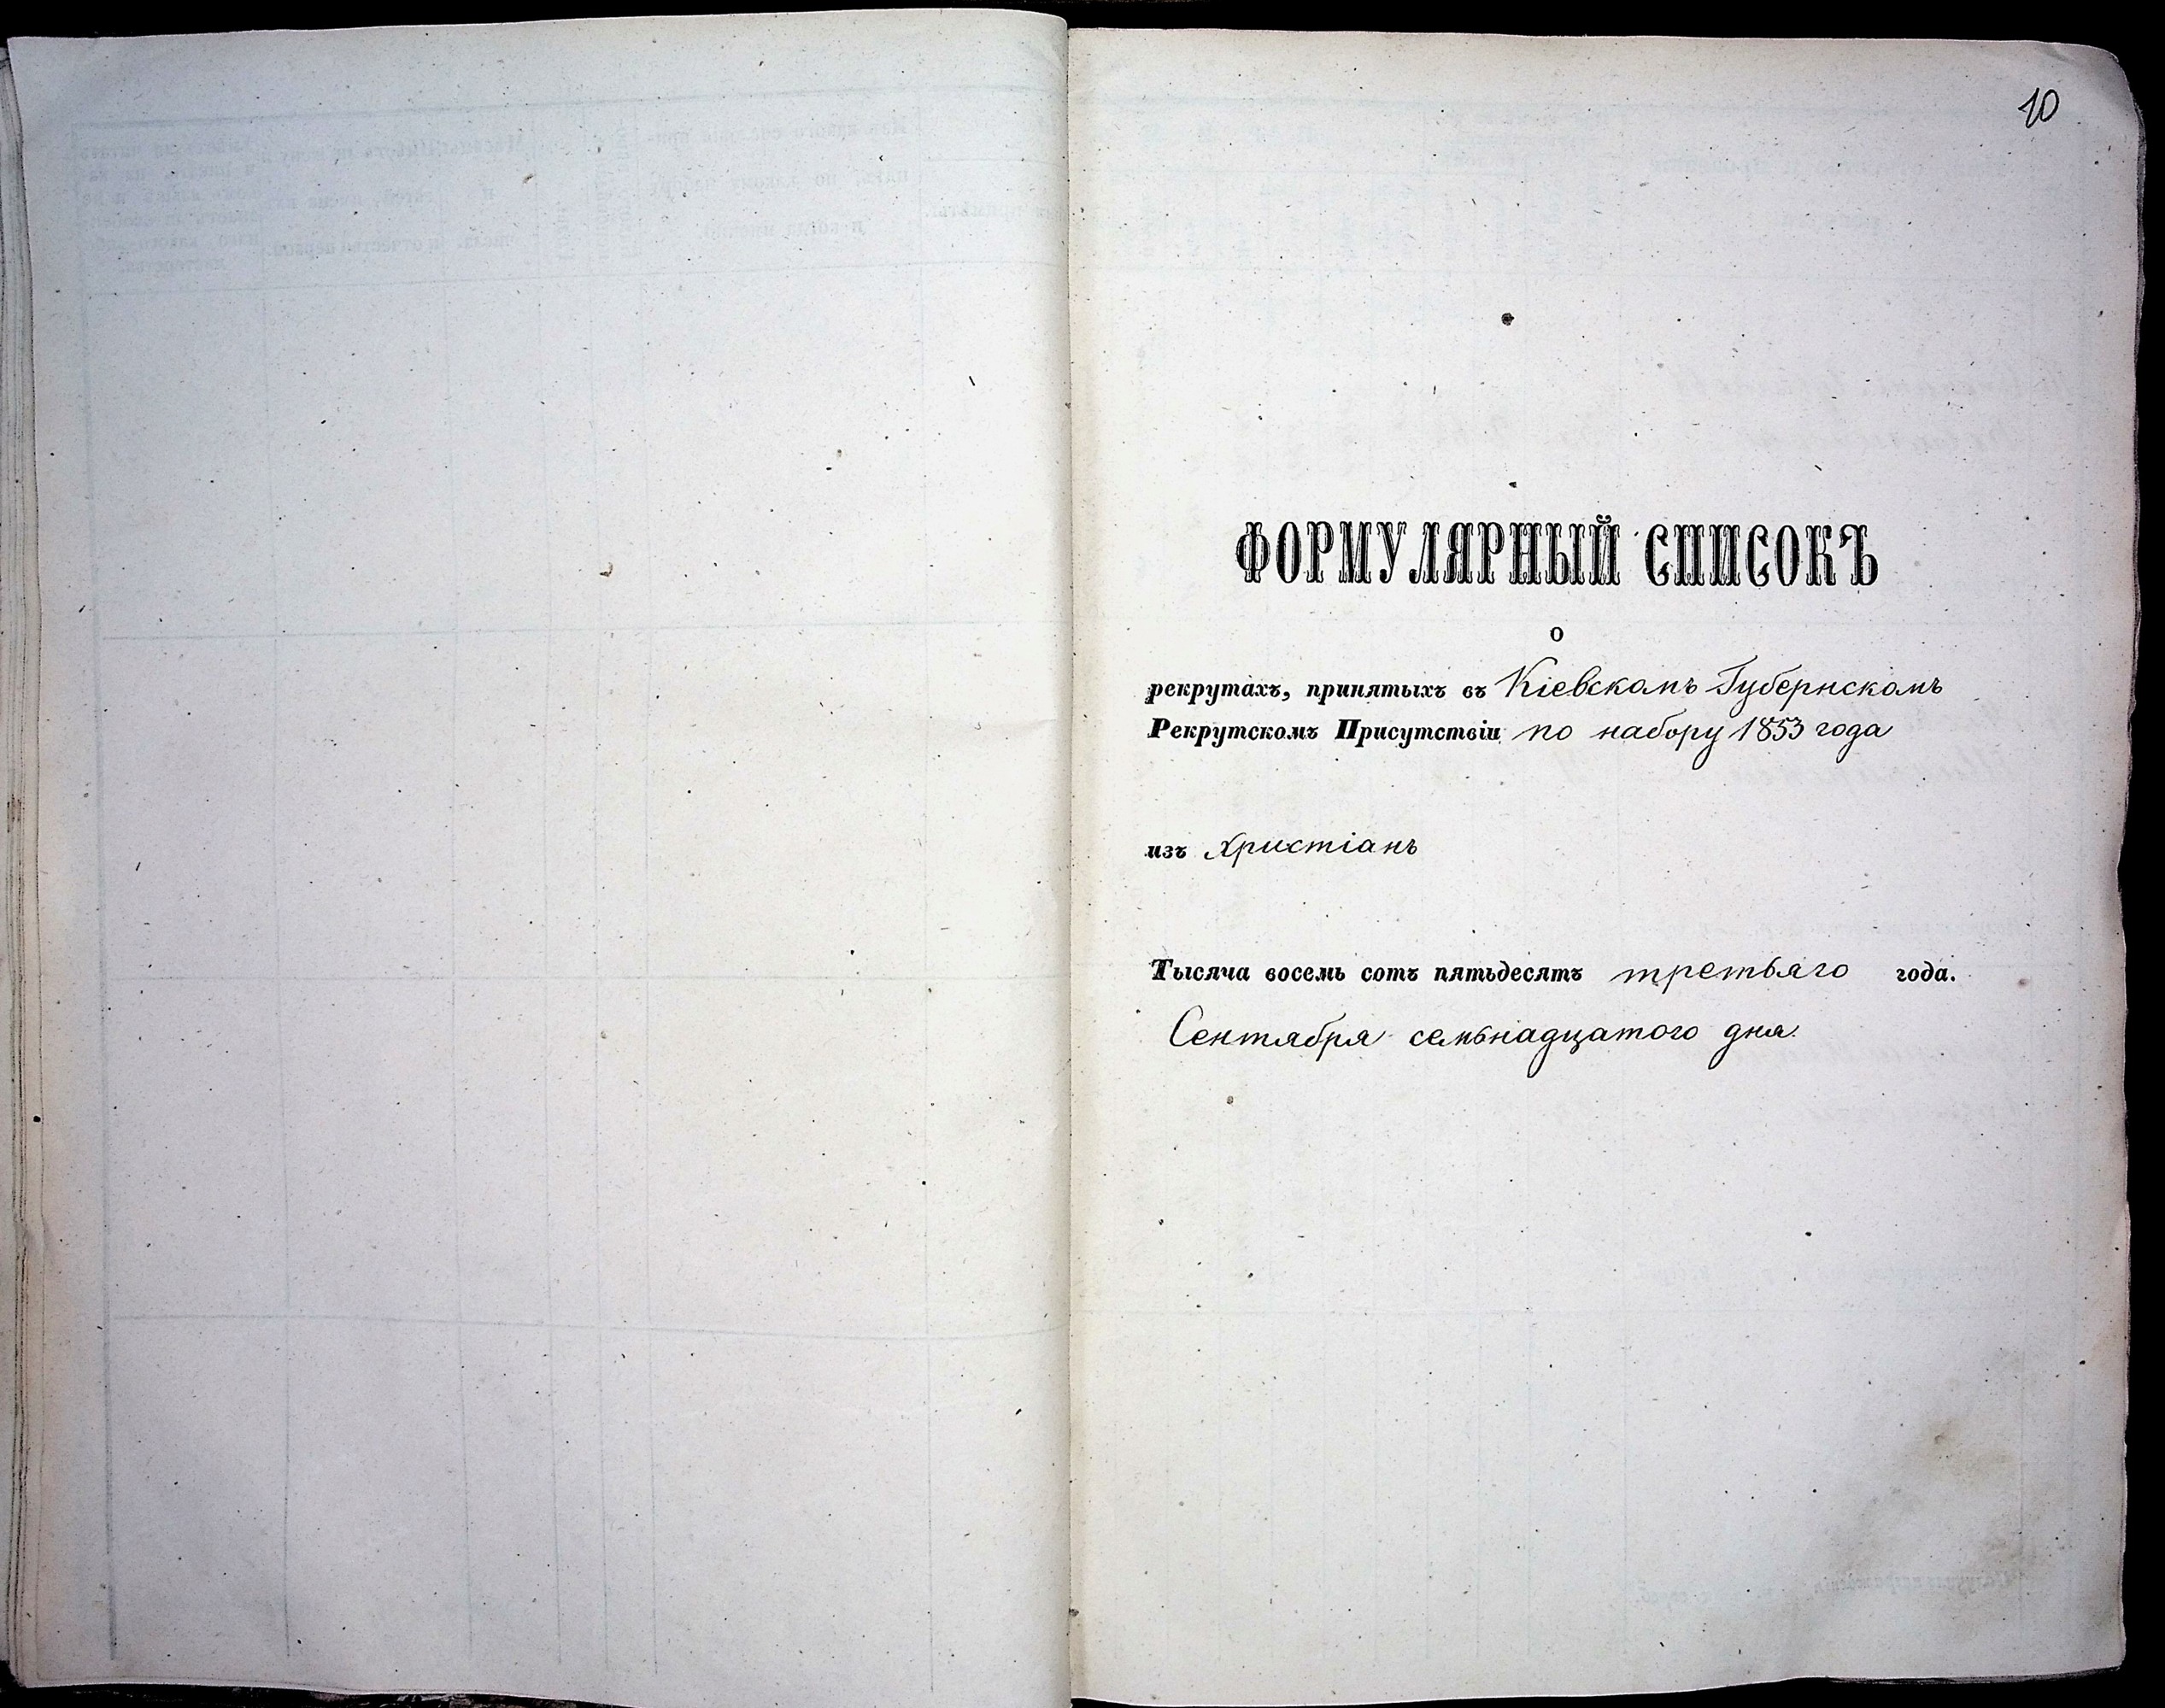 10
ФОРМУЛЯРНЫЙ СПИСОКЪ
о
рекрутахъ, принятыхъ въ Кіевскомъ Губернскомъ
Рекрутскомъ Присутствіи по набору 1853 года
изъ Христіанъ
Тысяча восемь сотъ пятьдесятъ третьяго года.
Сентября семьнадцатого дня.